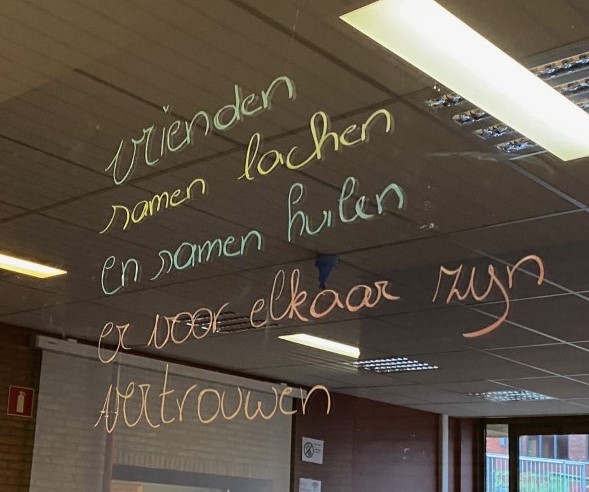 vrienden
samen lachen
en samen huilen
er voor elkaar zijn
vertrouwen